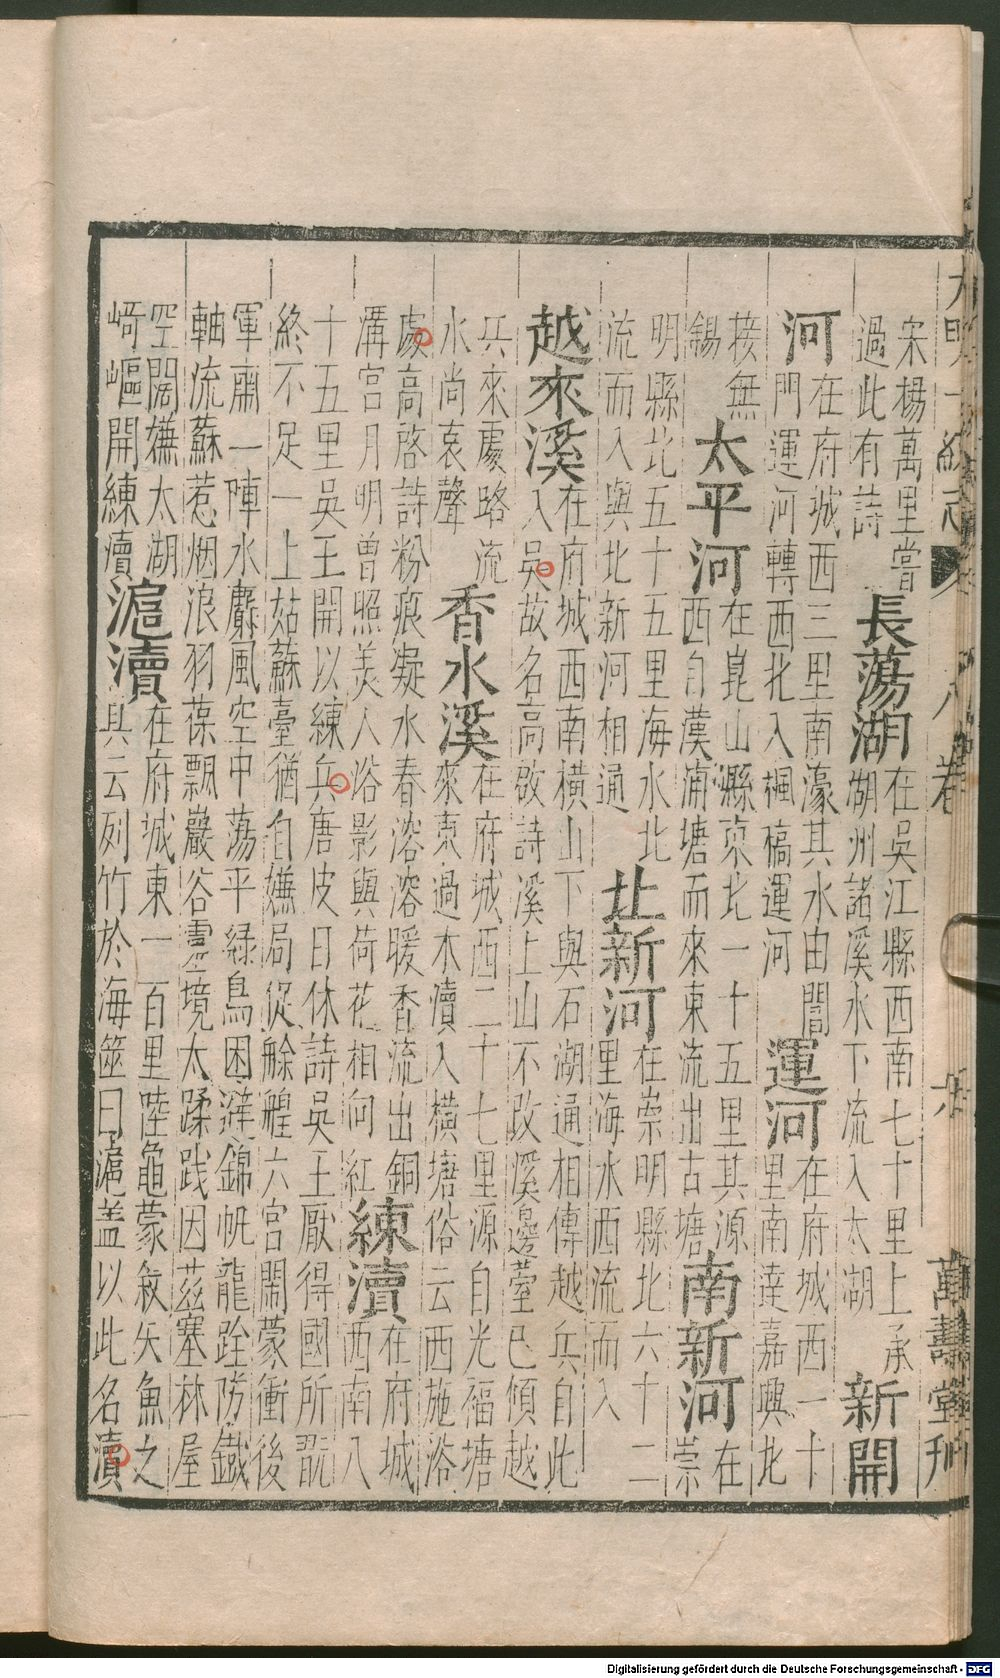 大明一統志 八卷 萬壽堂刊
宋楊萬里嘗
過此有詩
長蕩湖
在吳江縣西南七十里上承
湖州諸溪水下流入太湖
新開
河
在府城西三里南濠其水由閶
門運河轉西北入楓橋運河
運河
在府城西一十
里南達嘉興北
接無
錫
太平河
在崑山縣東北一十五里其源
西自漢浦塘而來東流出古塘
南新河
在
崇
明縣北五十五里海水北
流而入與北新河相通
北新河
在崇明縣北六十二
里海水西流而入
越來溪
在府城西南橫山下與石湖通相傳越兵自此
入吳故名高啟詩溪上山不改溪邊臺已傾越
兵來處路流
水尚哀聲
香水溪
在府城西二十七里源自光福塘
來東過木瀆入橫塘俗云西施浴
處高啓詩粉痕凝水春溶溶暖香流出銅
溝宮月明曾照美人浴影與荷花相向紅
練瀆
在府城
西南八
十五里吳王開以練兵唐皮日休詩吳王厭得國所翫
終不足一上姑蘇臺猶自嫌局促艅艎六宮鬧蒙衝後
軍肅一陣水麝風空中蕩平緑鳥困避錦帆龍跧防鐵
軸流蘇惹烟浪羽葆飄巖谷靈境太蹂踐因茲塞林屋
空闊嫌太湖
崎嶇開練瀆
滬瀆
在府城東一百里陸龜蒙敘矢魚之
具云列竹於海澨曰滬蓋以此名瀆
Digitalisierung gefördert durch die Deutsche Forschungsgemeinschaft - DFG